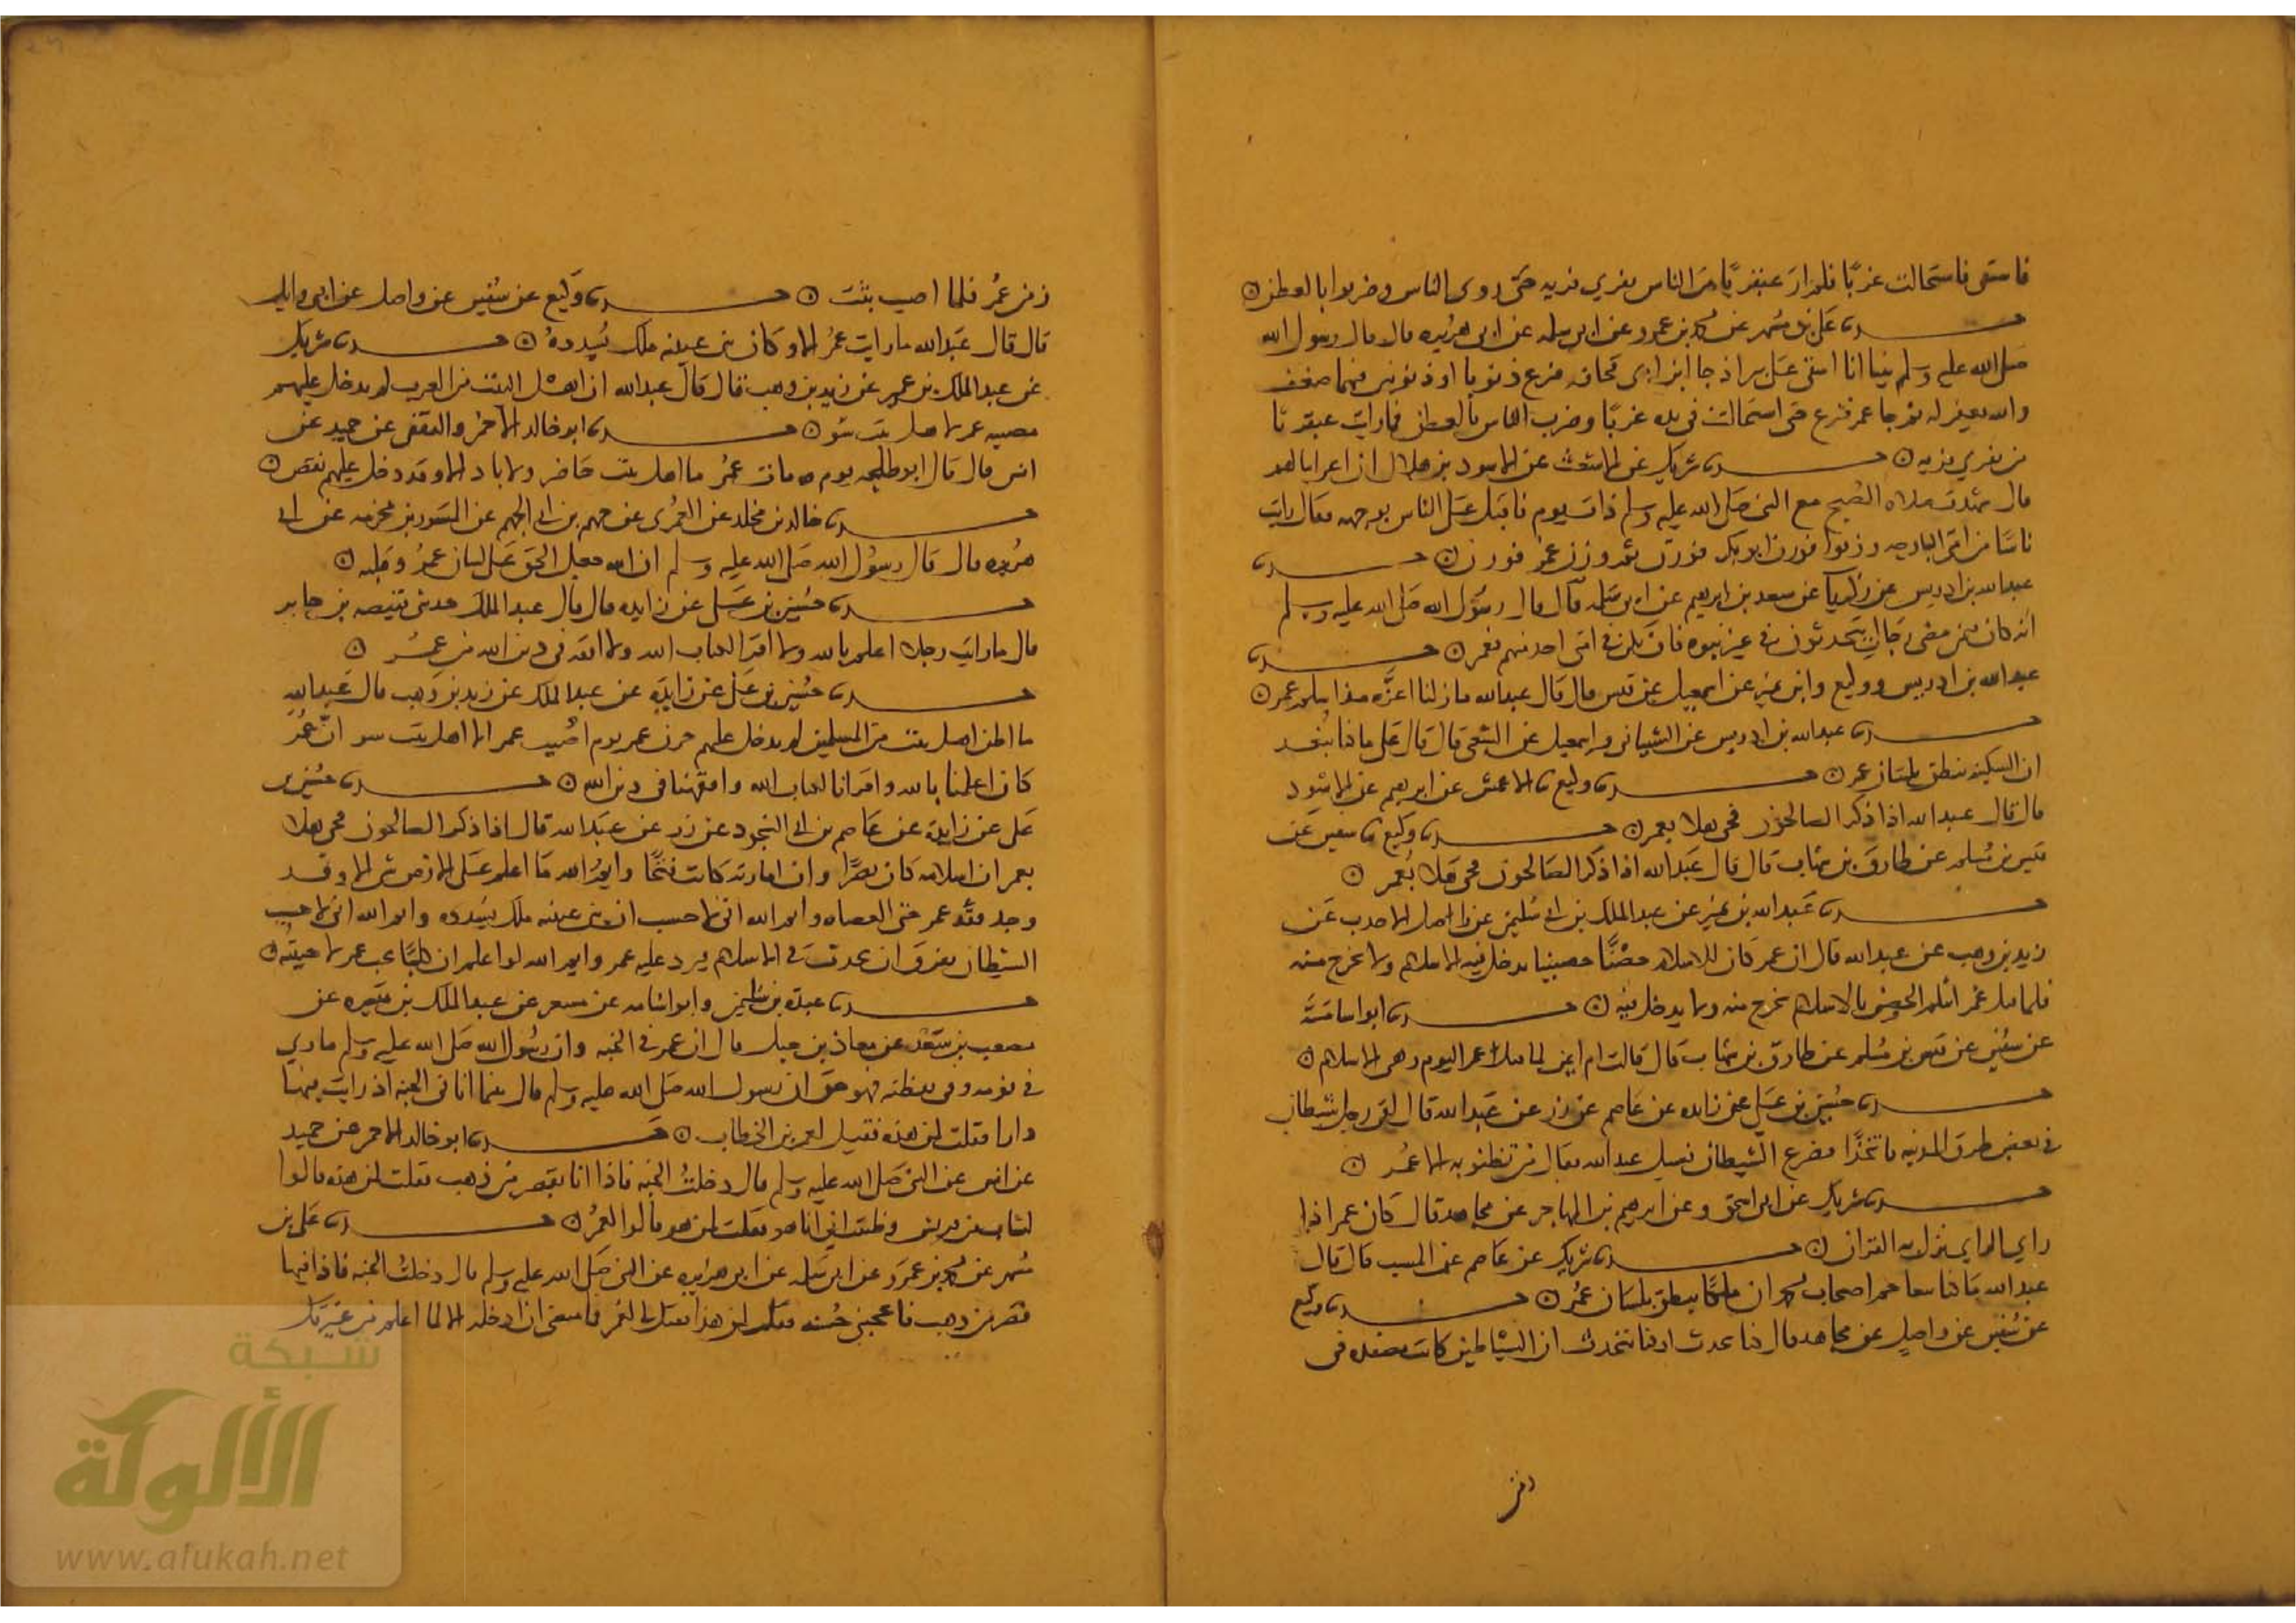 فاستقى فاستحالت غربا فلم ار عبقريا من الناس يفري فريه حتى روى الناس وضربوا بالعطن
حدثنا علي بن مسهر عن محمد بن عمرو عن ابي سلمه عن ابي هريره قال قال رسول الله
صلى الله عليه وسلم بينا انا استقي على بير اذ جا ابن ابي قحافه فنزع ذنوبا او ذنوبين فيهما ضعف
والله يغفر له ثم جا عمر فنزع حتى استحالت في يده غربا وضرب الناس بالعطن فما رايت عبقريا
من يفري فريه حدثنا شريك عن الاشعث عن الاسود بن هلال ان اعرابيا لهم
قال شهدت صلاه الصبح مع النبي صلى الله عليه وسلم ذات يوم فاقبل على الناس بوجهه فقال رايت
ناسا من امتي البارحه وزنوا فوزن ابو بكر فوزن ثم وزن عمر فوزن حدثنا
عبدالله بن ادريس عن زكريا عن سعد بن ابرهيم عن ابي سلمه قال قال رسول الله صلى الله عليه وسلم
انه كان فيمن مضى رجال يتحدثون في غير نبوه فان يكن في امتي احد منهم فعمر حدثنا
عبدالله بن ادريس ووكيع وابن نمير عن اسمعيل عن قيس قال قال عبدالله مازلنا اعزه منذ اسلم عمر
حدثنا عبدالله بن ادريس عن الشيباني واسمعيل عن الشعبي قال قال علي ما كنا نبعد
ان السكينه تنطق بلسان عمر حدثنا وكيع ثنا الاعمش عن ابرهيم عن الاسود
قال قال عبدالله اذا ذكر الصالحون فحي هلا بعمر حدثنا وكيع ثنا سفين عن
قيس بن مسلم عن طارق بن شهاب قال قال عبدالله اذا ذكر الصالحون فحي هلا بعمر
حدثنا عبدالله بن نمير عن عبدالملك بن ابي سليمن عن واصل الاحدب عن
زيد بن وهب عن عبدالله قال ان عمر كان للاسلام حصنا حصينا يدخل فيه الاسلام ولا يخرج منه
فلما قتل عمر انثلم الحصن فالاسلام يخرج منه ولا يدخل فيه حدثنا ابو اسامة
عن سفين عن قيس بن مسلم عن طارق بن شهاب قال قالت ام ايمن لما قتل عمر اليوم وهى الاسلام
حدثنا حسين بن علي عن زايده عن عاصم عن زر عن عبدالله قال لقي رجل شيطانا
في بعض طرق المدينه فاتخذا فصرع الشيطان فسيل عبدالله فقال من تظنونه الا عمر
حدثنا شريك عن ابي اسحق وعن ابرهيم بن المهاجر عن مجاهد قال كان عمر اذا
راي الراي ينزل به القران حدثنا شريك عن عاصم عن المسيب قال قال
عبدالله ما كنا نتعاجم اصحاب محمد ان ملكا ينطق بلسان عمر حدثنا وكيع
عن سفين عن واصل عن مجاهد قال كنا نحدث او كنا نتحدث ان الشياطين كانت مصفده في
زمن عمر
زمن عمر فلما اصيب بثت حدثنا وكيع عن سفين عن واصل عن ابي وايل
قال قال عبدالله ما رايت عمر الا وكان بين عينيه ملك يسدده حدثنا شريك
عن عبدالملك بن عمير عن زيد بن وهب قال قال عبدالله ان اهل البيت من العرب لم يدخل عليهم
مصيبه عمر لاهل بيت سو حدثنا ابو خالد الاحمر والثقفي عن حميد عن
انس قال قال ابو طلحه يوم مات عمر ما اهل بيت حاضر ولا باد الا وقد دخل عليهم نقص
حدثنا خالد بن مخلد عن العمري عن جهم بن ابي الجهم عن المسور بن مخرمه عن ابي
هريره قال قال رسول الله صلى الله عليه وسلم ان الله جعل الحق على لسان عمر وقلبه
حدثنا حسين بن علي عن زايده قال قال عبدالملك حدثني قبيصه بن جابر
قال ما رايت رجلا اعلم بالله ولا اقرا لكتاب الله ولا افقه في دين الله من عمر
حدثنا حسين بن علي عن زايدة عن عبدالملك عن زيد بن وهب قال عبدالله
ما اظن اهل بيت من المسلمين لم يدخل عليهم حزن عمر يوم اصيب عمر الا اهل بيت سو ان عمر
كان اعلمنا بالله واقرانا لكتاب الله وافقهنا في دين الله حدثنا حسين بن
علي عن زايدة عن عاصم بن ابي النجود عن زر عن عبدالله قال اذا ذكر الصالحون فحي هلا
بعمر ان اسلامه كان نصرا وان امارته كانت فتحا وايم الله ما اعلم على الارض شي الا وقد
وجد فقد عمر حتى العضاه وايم الله اني لاحسب ان بين عينيه ملك يسدده وايم الله اني لاحسب
الشيطان يفرق ان يحدث في الاسلام فيرد عليه عمر وايم الله لو اعلم ان كلبا يحب عمر لاحببته
حدثنا عبدة بن سليمن وابو اسامه عن مسعر عن عبدالملك بن ميسره عن
مصعب بن سعد عن معاذ بن جبل قال ان عمر في الجنه وان رسول الله صلى الله عليه وسلم ما راي
في نومه وفي يقظته فهو حق ان رسول الله صلى الله عليه وسلم قال بينما انا في الجنه اذ رايت فيها
دارا فقلت لمن هذه فقيل لعمر بن الخطاب حدثنا ابو خالد الاحمر عن حميد
عن انس عن النبي صلى الله عليه وسلم قال دخلت الجنه فاذا انا بقصر من ذهب فقلت لمن هذه قالوا
لشاب من قريش وظننت اني انا هو فقلت لمن هو قالوا لعمر حدثنا علي بن
مسهر عن محمد بن عمرو عن ابي سلمه عن ابي هريره عن النبي صلى الله عليه وسلم قال دخلت الجنه فاذا فيها
قصر من ذهب فاعجبني حسنه فقلت لمن هذا فقيل لي لعمر فما منعني ان ادخله الا لما اعلم من غيرتك
شبكة
الألوكة
www.alukah.net